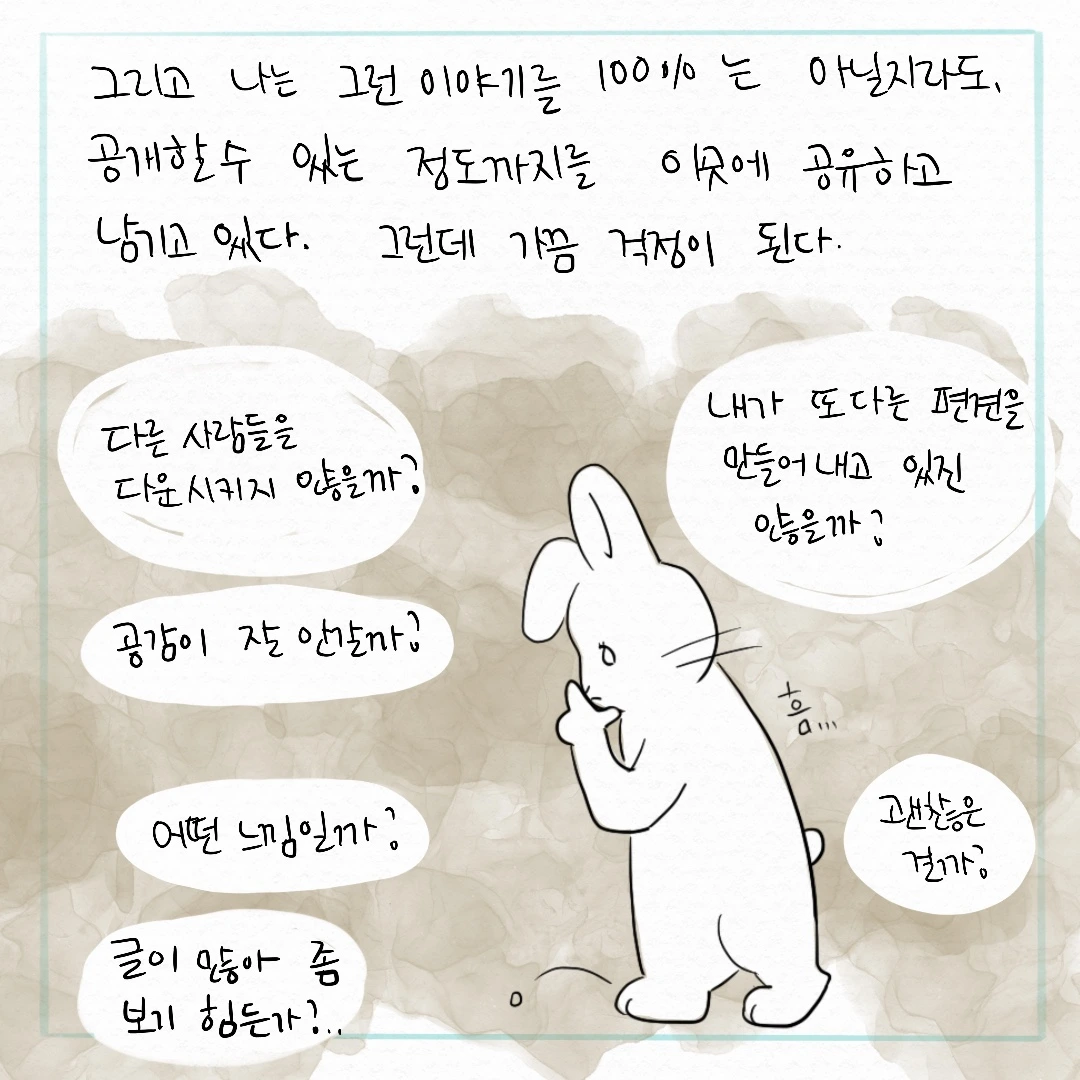 그리고 나는 그런 이야기를 100%는 아닐지라도,
공개할 수 있는 정도까지를 이곳에 공유하고
남기고 있다. 그런데 가끔 걱정이 된다.
다른 사람들을
다운시키지 않을까?
내가 또 다른 편견을
만들어 내고 있진
않을까?
공감이 잘 안갈까?
흠...
어떤 느낌일까?
괜찮은
걸까?
글이 많아 좀
보기 힘든가?..